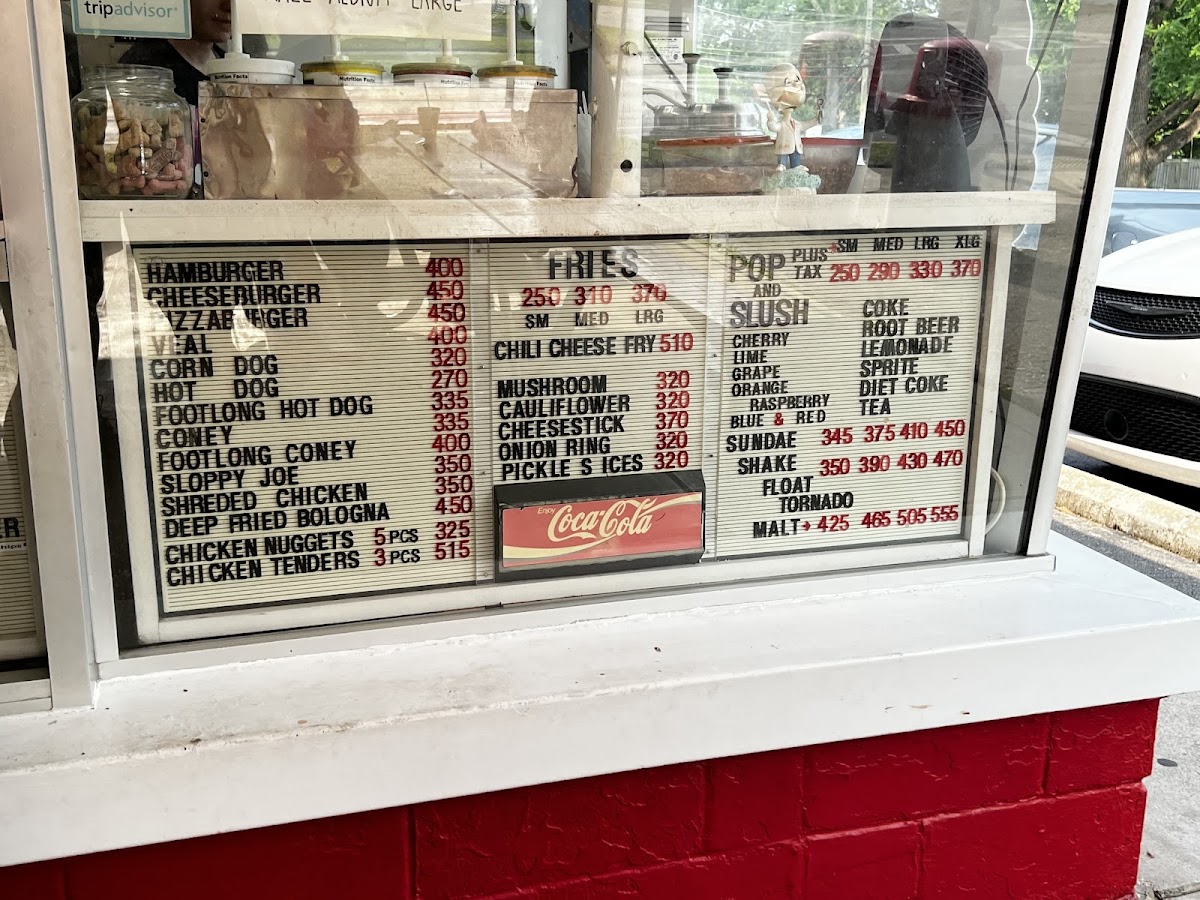 tripadvisor
SMALL MEDIUM LARGE
Nutrition Facts
Nutrition Facts
HAMBURGER 400
CHEESEBURGER 450
PIZZABURGER 450
VEAL 400
CORN DOG 320
HOT DOG 270
FOOTLONG HOT DOG 335
CONEY 335
FOOTLONG CONEY 400
SLOPPY JOE 350
SHREDED CHICKEN 350
DEEP FRIED BOLOGNA 450
CHICKEN NUGGETS 5 PCS 325
CHICKEN TENDERS 3 PCS 515
FRIES
250 310 370
SM MED LRG
CHILI CHEESE FRY 510
MUSHROOM 320
CAULIFLOWER 320
CHEESESTICK 370
ONION RING 320
PICKLE S ICES 320
Enjoy
Coca-Cola
POP PLUS + SM MED LRG XLG
TAX 250 290 330 370
AND
SLUSH
CHERRY
LIME
GRAPE
ORANGE
RASPBERRY
BLUE & RED
COKE
ROOT BEER
LEMONADE
SPRITE
DIET COKE
TEA
SUNDAE 345 375 410 450
SHAKE 350 390 430 470
FLOAT
TORNADO
MALT+ 425 465 505 555